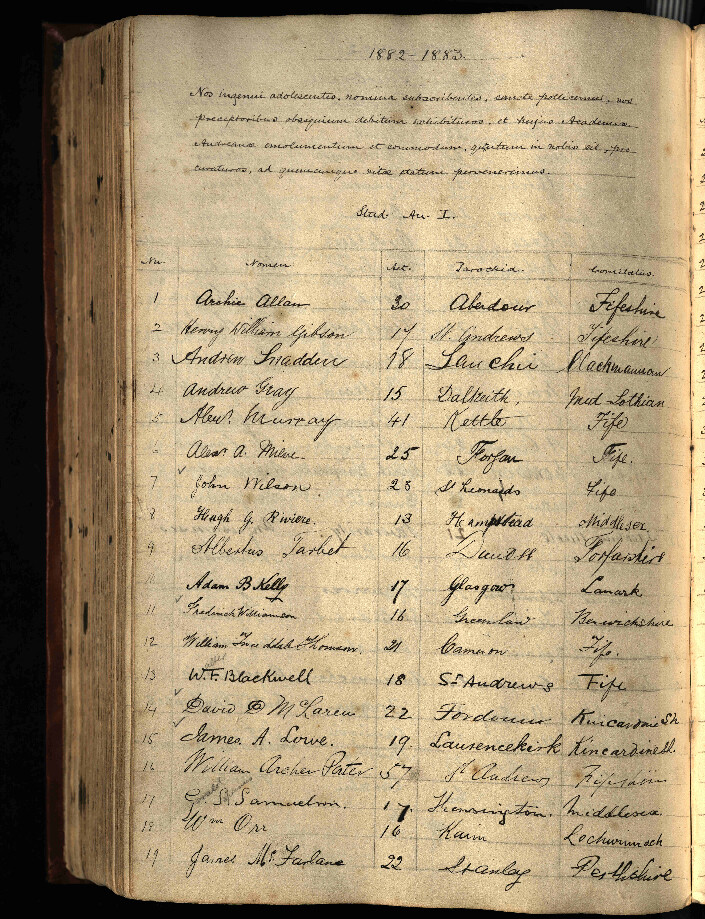 1882-1883.
Nos ingenui adolescentes, nomina subscribentes, sancte pollicemur, nos
preceptoribus obsequium debitum exhibituros, et hujus Academiæ
Andreanæ emolumentum et commodum, quantum in nobis sit, pro-
curaturos, ad quemcunque vitæ statum pervenerimus.
Stud. An. I.
No. Nomen Aet. Parochia. Comitatus.
1 Archie Allan 20 Aberdour Fifeshire
2 Henry William Gibson 17 St. Andrews Fifeshire
3 Andrew Snadden 18 Clackmannan
4 Andrew Gray 15 Dalkeith, Mid Lothian
5 Alexr. Murray 41 Kettle Fife
6 Alexr A. Milne 25 Forfar Fife.
7 John Wilson 23 St Leonards Fife
8 Hugh G. Riviere. 13 Hampstead Middlesex
9 Albertus Tarbet 16 Forfarshire
10 Adam B Kelly 17 Glasgow Lanark
11 Frederick Williamson 16 Greenlaw Berwickshire
12 William Thomson. 21 Cameron Fife.
13 W. F. Blackwell 18 St Andrews Fife
14 David D McLaren 22 Fordoun Kincardine Sh
15 James A. Lowe. 19 Laurencekirk Kincardine Sh.
16 William Archer Pater 57 St Andrews Fifeshire
17 G. S. Samuelson. 17. Kensington. Middlesex
18 Wm Orr 16 Lochwinnoch
19 James McFarlane 22 Stanley Perthshire